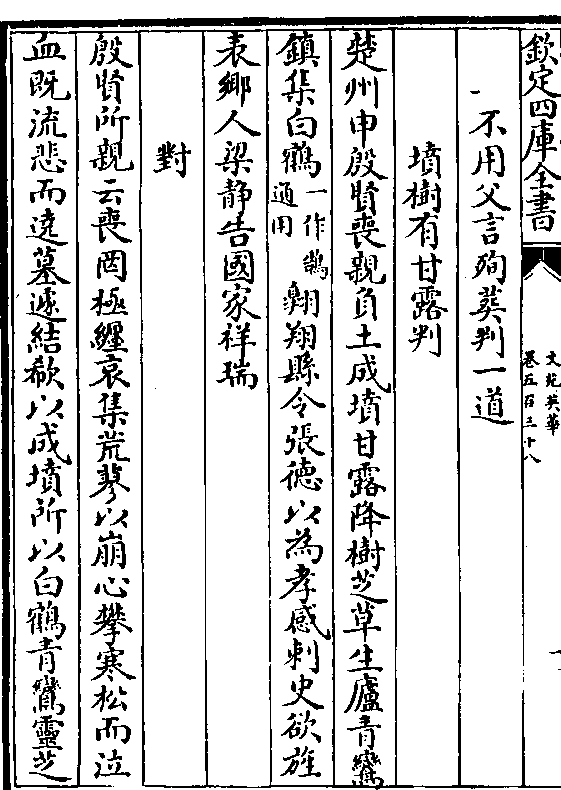 欽定四庫全書
文苑英華
卷五百三十八
不用父言殉葬判一道
墳樹有甘露判
楚州申殷賢喪親負土成墳甘露降樹芝草生廬青鸞
鎮集白鶴一作鵲通用翱翔縣令張德以為孝感刺史欲旌
表鄉人梁静告國家祥瑞
對
殷賢所親云喪罔極纏哀集荒蓼以崩心攀寒松而泣
血既流悲而遶墓遽結欷以成墳所以白鶴青鸞靈芝